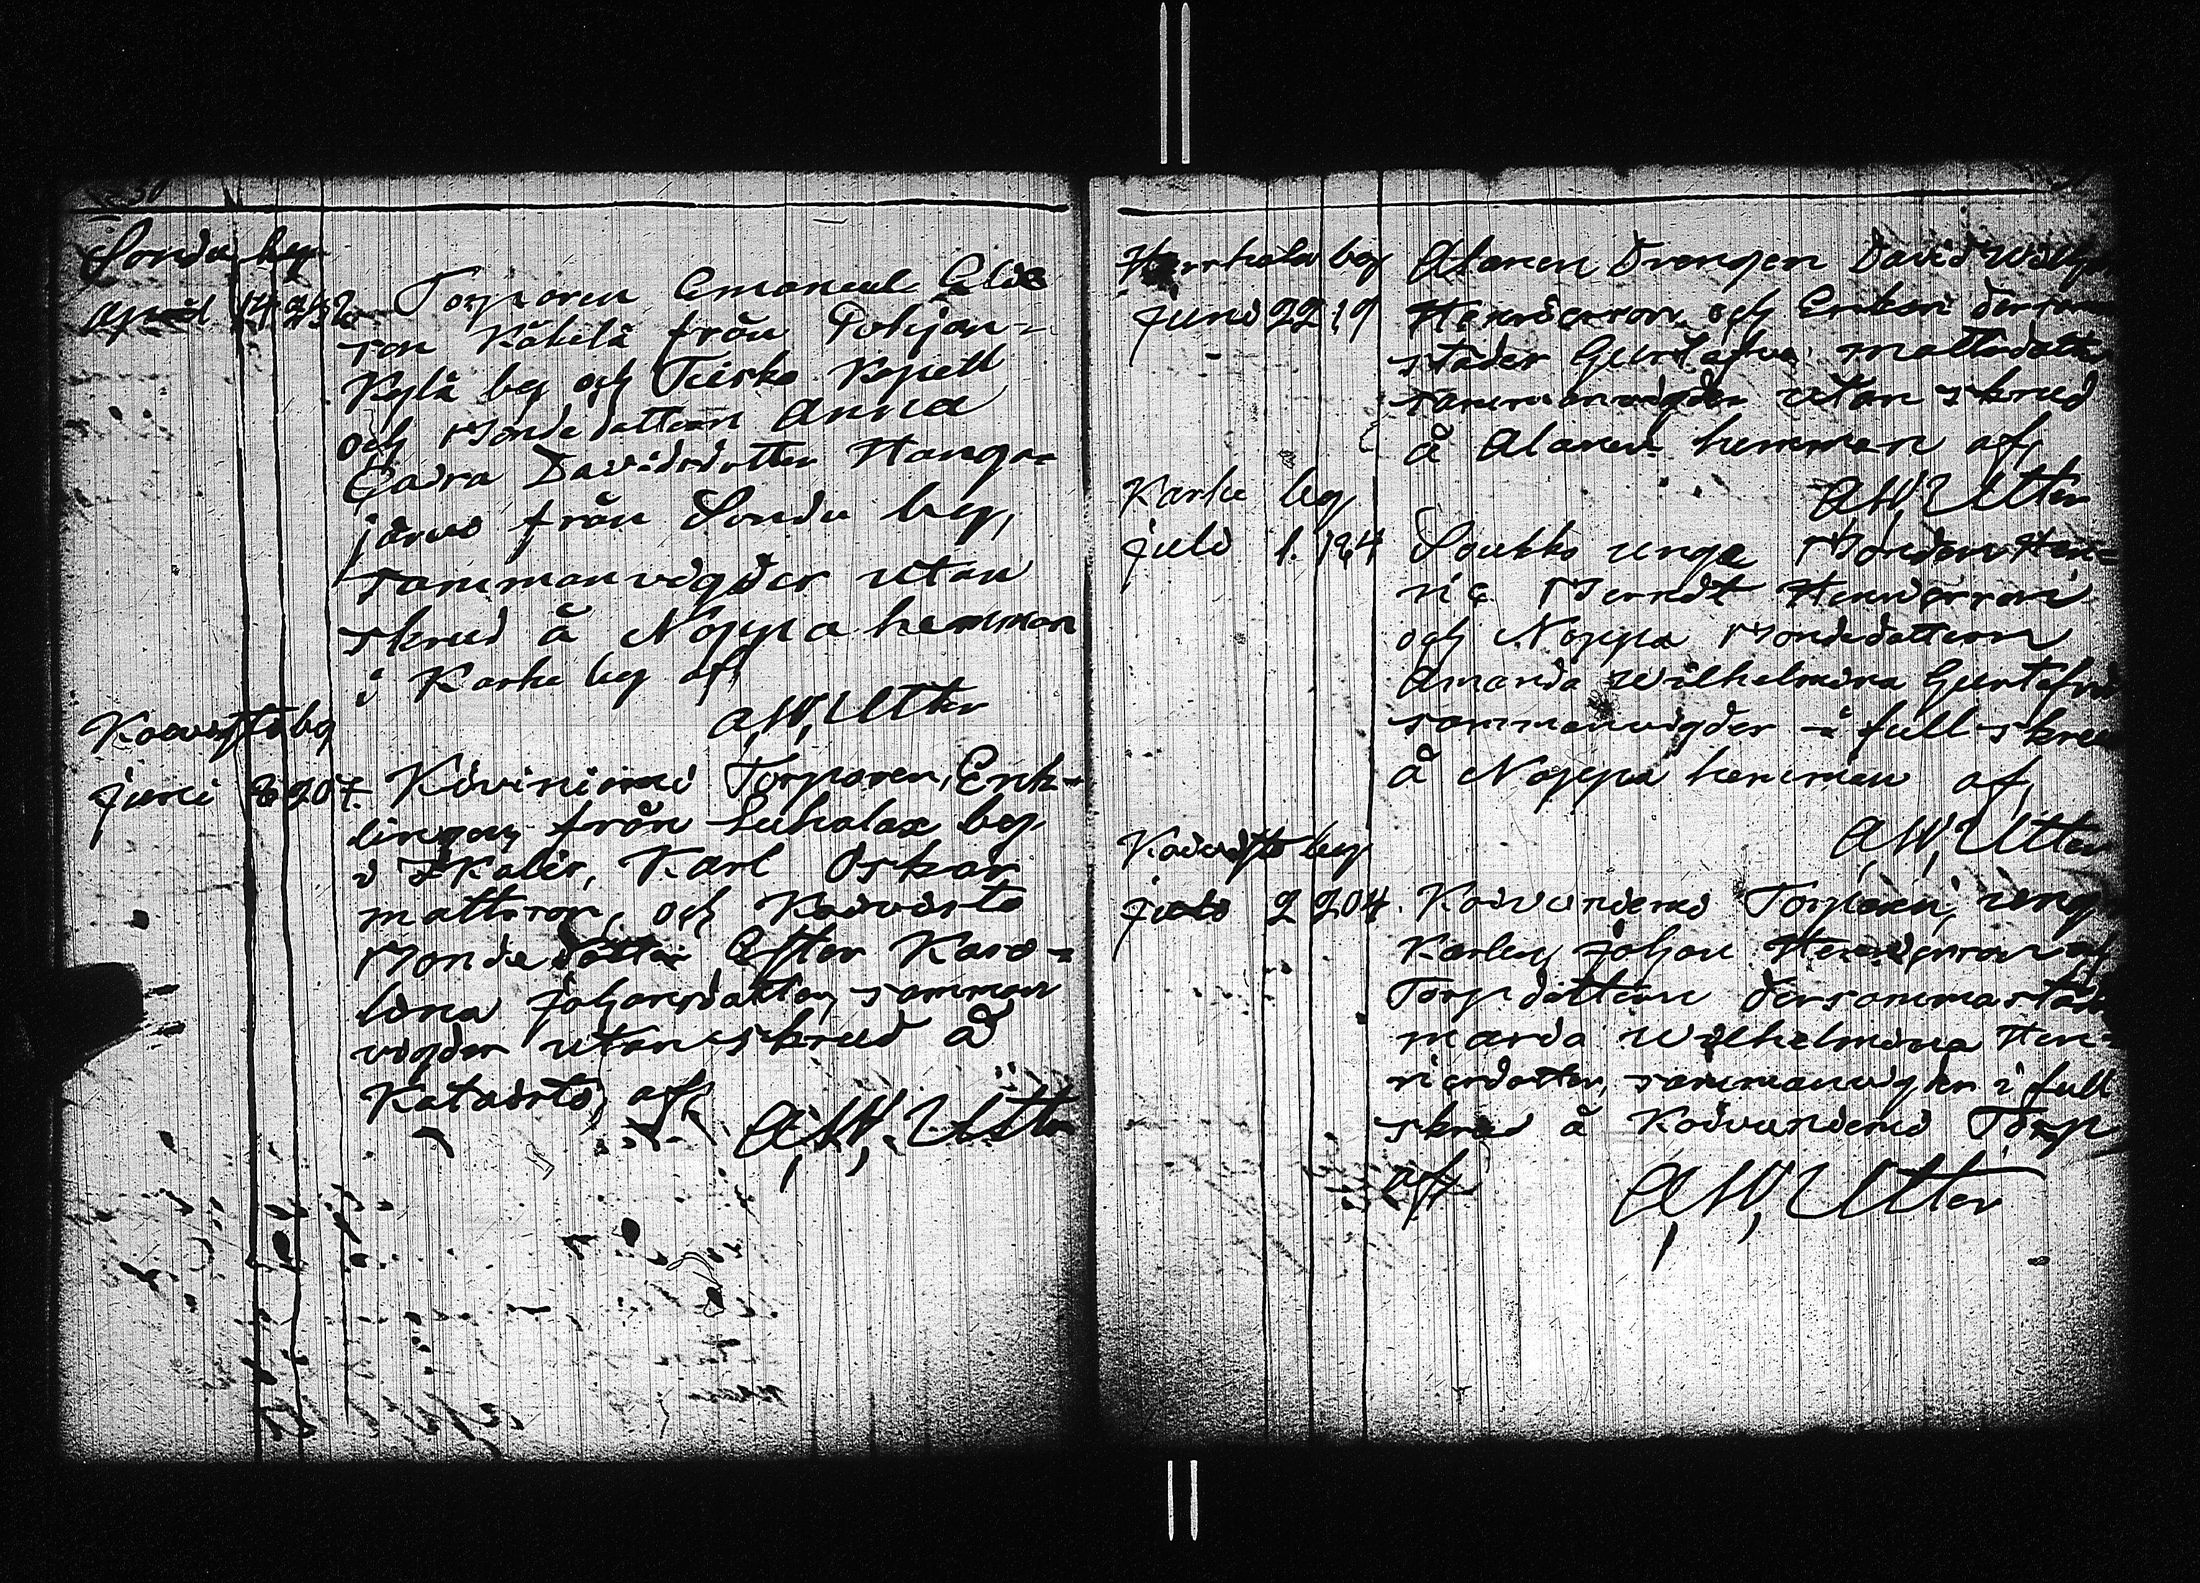 Sondu by
April 14 232 Torparen Emanuel Elis
son Käkelä från Pohjan-
kylä by och Teisko Kapell
och Bondedottern Anna
Edvra Davidsdotter Hanga=
järvi från Sondu by,
sammanvigder utan
skrud å Noppa hemman
i Karhe by af
A. W. Utter
Koivisto by
juni 8 207. Kiviniemi Torparen, Enk-
lingen från Luhalax by
i Ikalis, Karl Oskar
mattsson, och Koivisto
Bondedotter Ester Karo=
lina Johansdotter, samman
vigder utan skrud å
Kataisto, af
A. W. Utter
by Alanen Drengen David
juni 22 19 Henricsson och
städes Gustafva mattsdotter
sammanvigder utan skrud
å Alanen hemman af
A. W. Utter
Karhe by
juli 1. 184 Soukko unge Bonden Hen-
ric Berndt Henricsson
och Noppa Bondedottern
Amanda Wilhelmina Gustafs
sammanvigder i full skrud
å Noppa hemman af
A. W. Utter
Koivisto by
juli 2 204. Koivuniemi Torpan, unge
Karlen Johan Henricsson och
Torpdottern dersammastädes
maria Wilhelmina Hen-
ricsdotter, sammanvigder i full
skrud å Koivuniemi Torp
af A. W. Utter